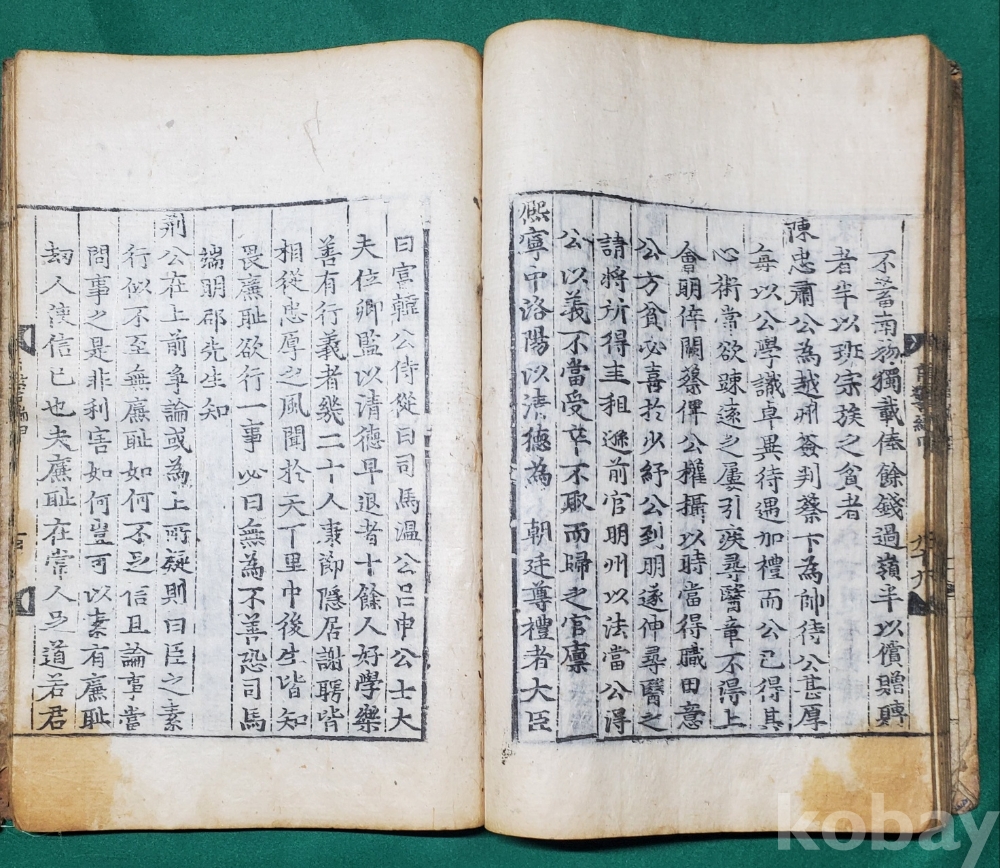 不蓄南物獨載俸餘錢過嶺半以償贈賻
者半以班宗族之貧者
陳忠肅公為越州簽判蔡卞為帥待公甚厚
每以公學識卓異待遇加禮而公已得其
心術常欲踈遠之屢引疾尋醫章不得上
會明倅闕檄俾公權攝以時當得職田意
公方貧必喜於少紓公到明遂伸尋醫之
請將所得圭租遜前官明州以法當公得
公以義不當受卒不取而歸之官廪
熙寧中洛陽以清德為朝廷尊禮者大臣
曰富韓公侍從曰司馬溫公呂申公士大
夫位卿監以清德早退者十餘人好學樂
善有行義者幾二十人康節隱居謝聘皆
相從忠厚之風聞於天下里中後生皆知
畏廉恥欲行一事必曰無為不善恐司馬
端明邵先生知
荆公在上前爭論或為上所疑則曰臣之素
行似不至無廉恥如何不足信且論事當
問事之是非利害如何豈可以素有廉恥
刼人使信已也夫廉恥在常人足道若君
kobay